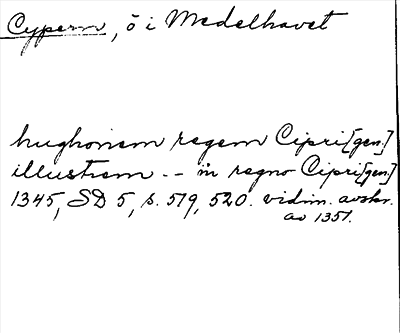 Cypern, ö i Medelhavet
hughonem regem Cipri [gen.]
illustrem -- in regno Cipri [gen.]
1345, SD 5, s. 519, 520. vidim. avskr.
av 1351.